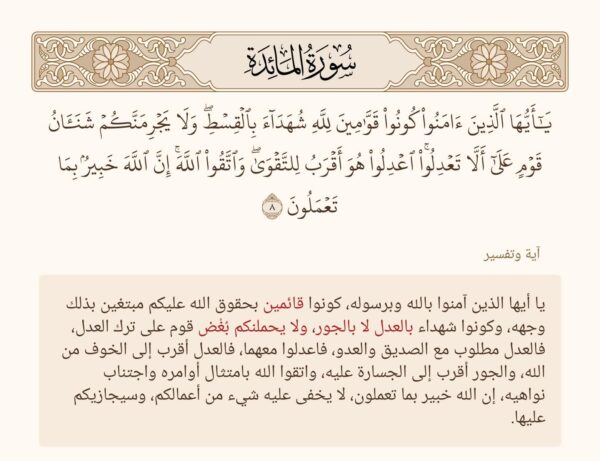 سُورَةُ المَائِدَةِ
يَـٰٓأَيُّهَا ٱلَّذِينَ ءَامَنُواْ كُونُواْ قَوَّٰمِينَ لِلَّهِ شُهَدَآءَ بِٱلۡقِسۡطِۖ وَلَا يَجۡرِمَنَّكُمۡ شَنَـَٔانُ
قَوۡمٍ عَلَىٰٓ أَلَّا تَعۡدِلُواْۚ ٱعۡدِلُواْ هُوَ أَقۡرَبُ لِلتَّقۡوَىٰۖ وَٱتَّقُواْ ٱللَّهَۚ إِنَّ ٱللَّهَ خَبِيرُۢ بِمَا
تَعۡمَلُونَ ٨
آية وتفسير
يا أيها الذين آمنوا بالله وبرسوله، كونوا قائمين بحقوق الله عليكم مبتغين بذلك
وجهه، وكونوا شهداء بالعدل لا بالجور، ولا يحملنكم بُغْض قوم على ترك العدل،
فالعدل مطلوب مع الصديق والعدو، فاعدلوا معهما، فالعدل أقرب إلى الخوف من
الله، والجور أقرب إلى الجسارة عليه، واتقوا الله بامتثال أوامره واجتناب
نواهيه، إن الله خبير بما تعملون، لا يخفى عليه شيء من أعمالكم، وسيجازيكم
عليها.